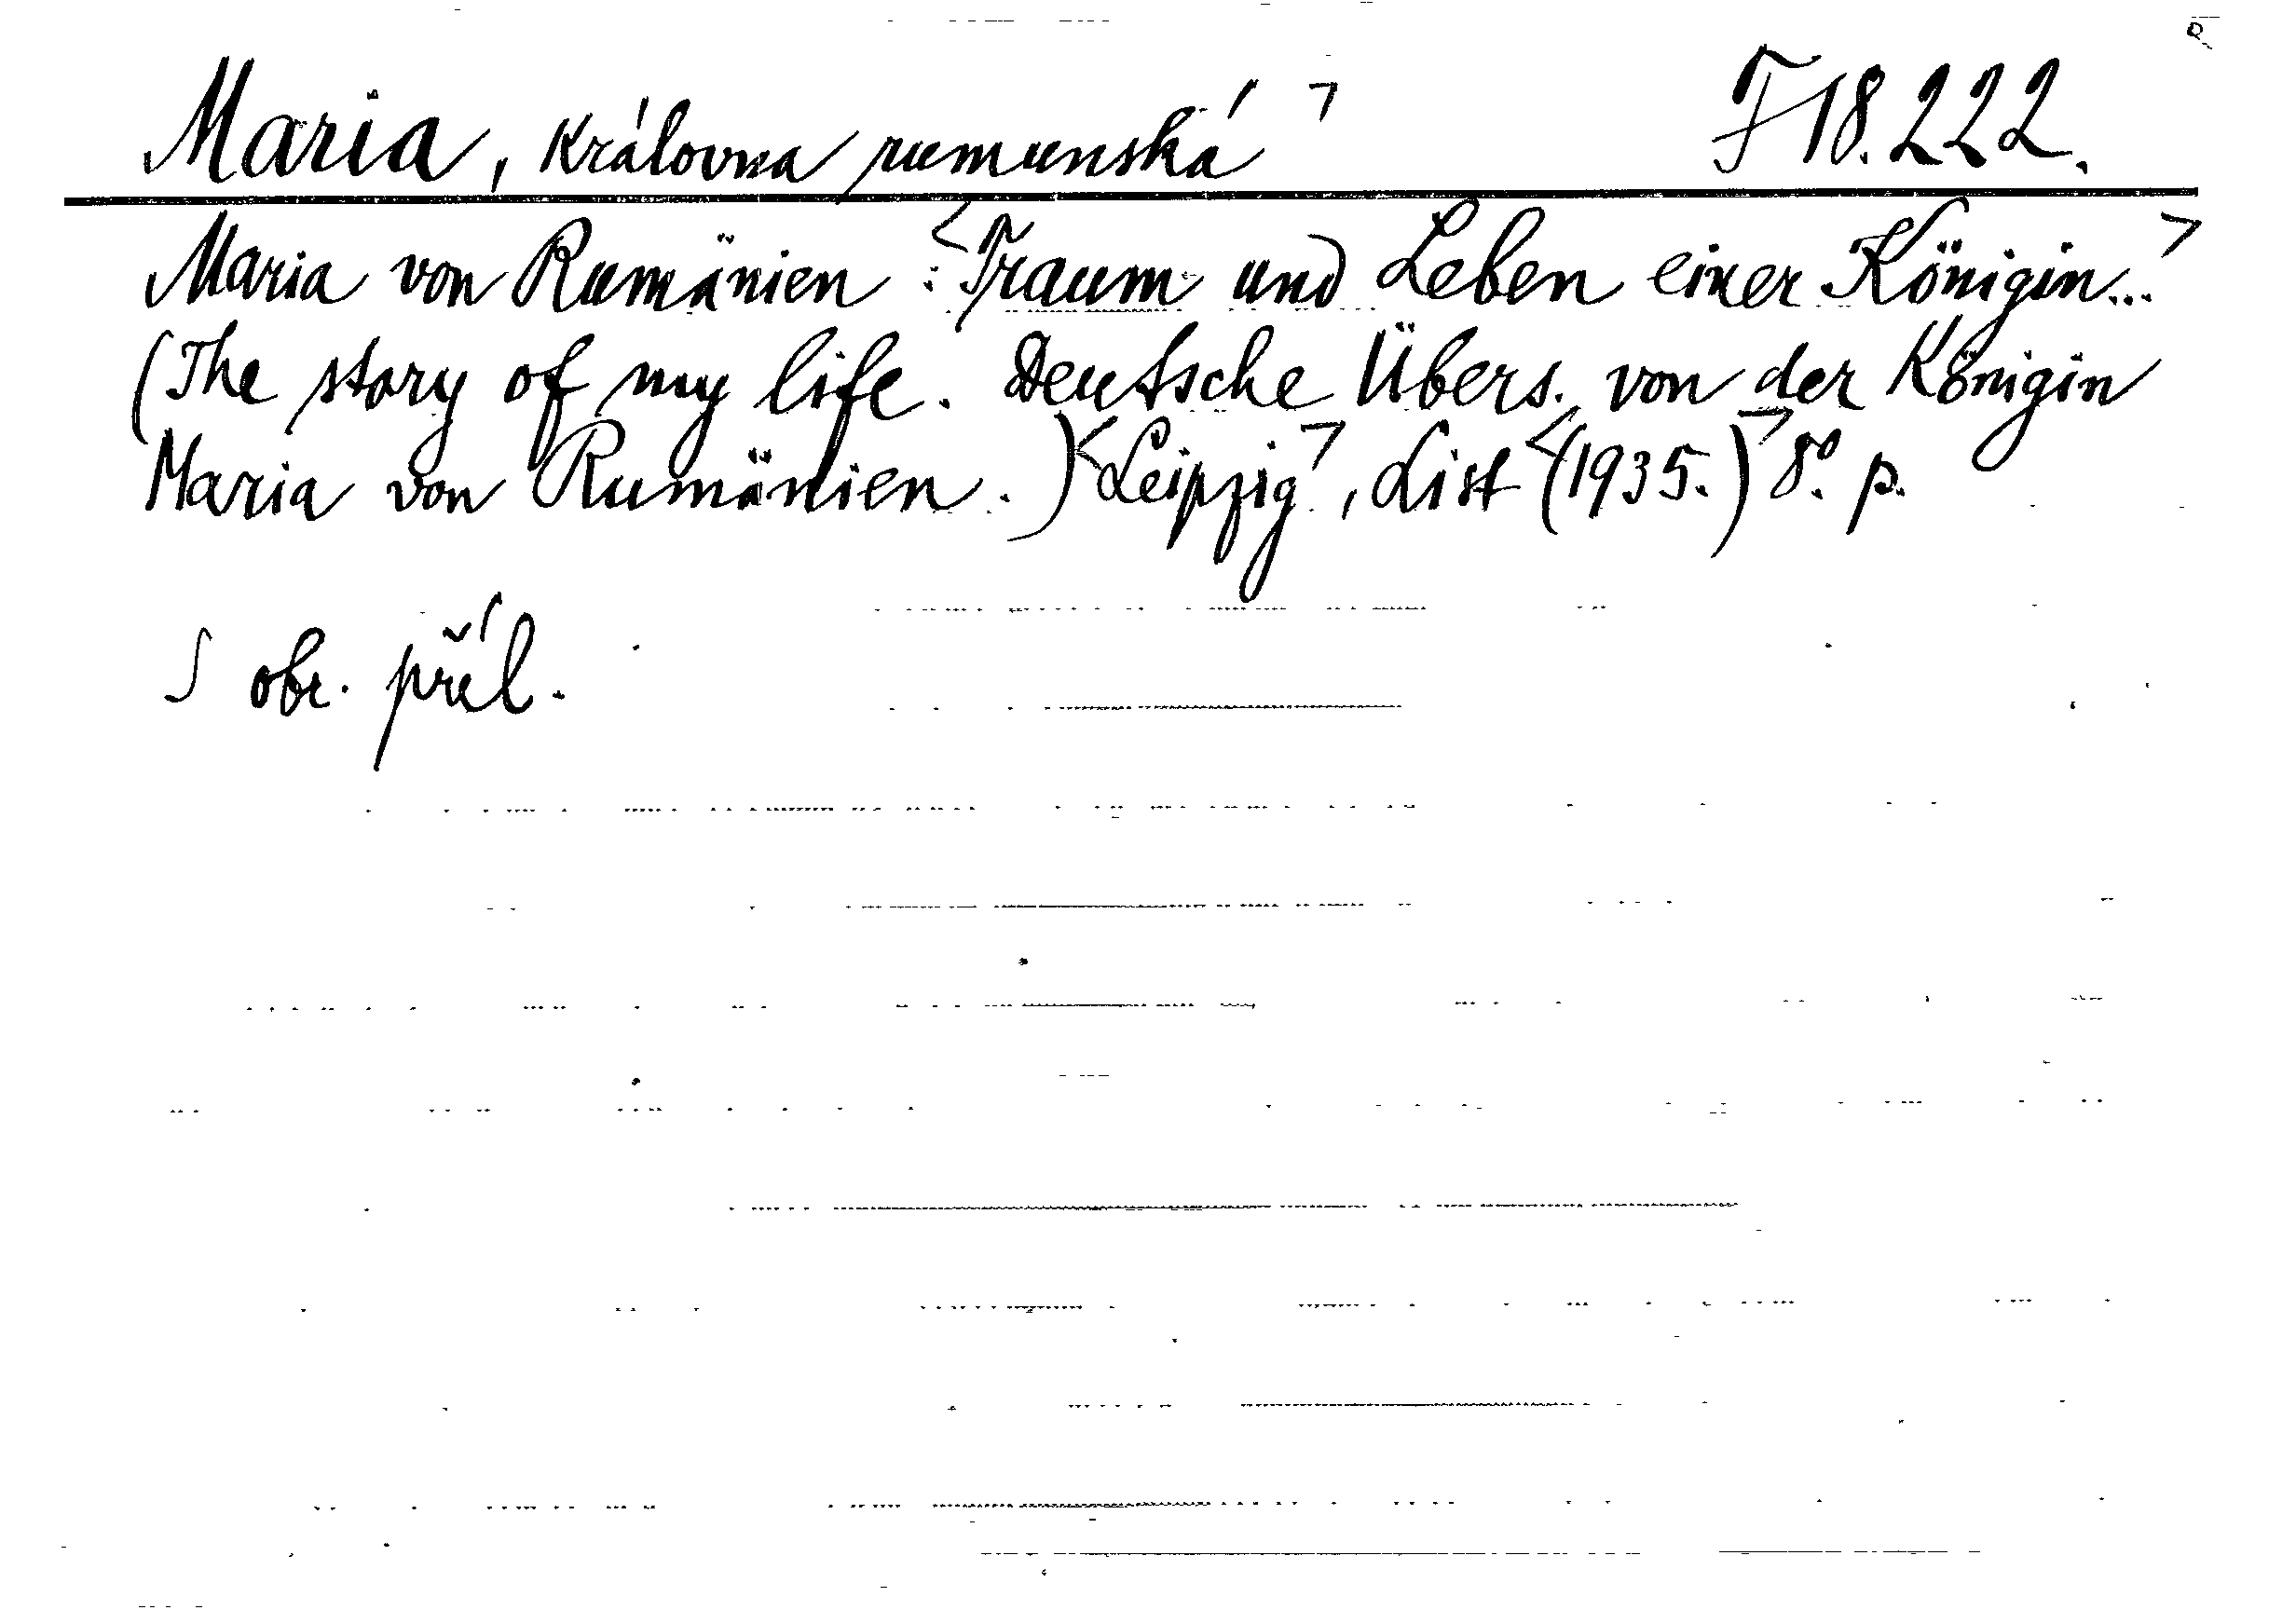 Maria, královna rumunská ⌝ F 18.222.
Maria von Rumänien : <Traum und Leben einer Königin...⌝
(The story of my life. Deutsche Übers. von der Königin
Maria von Rumänien.) <Leipzig⌝, List <(1935.)⌝ 8°. p.
S obr. příl.